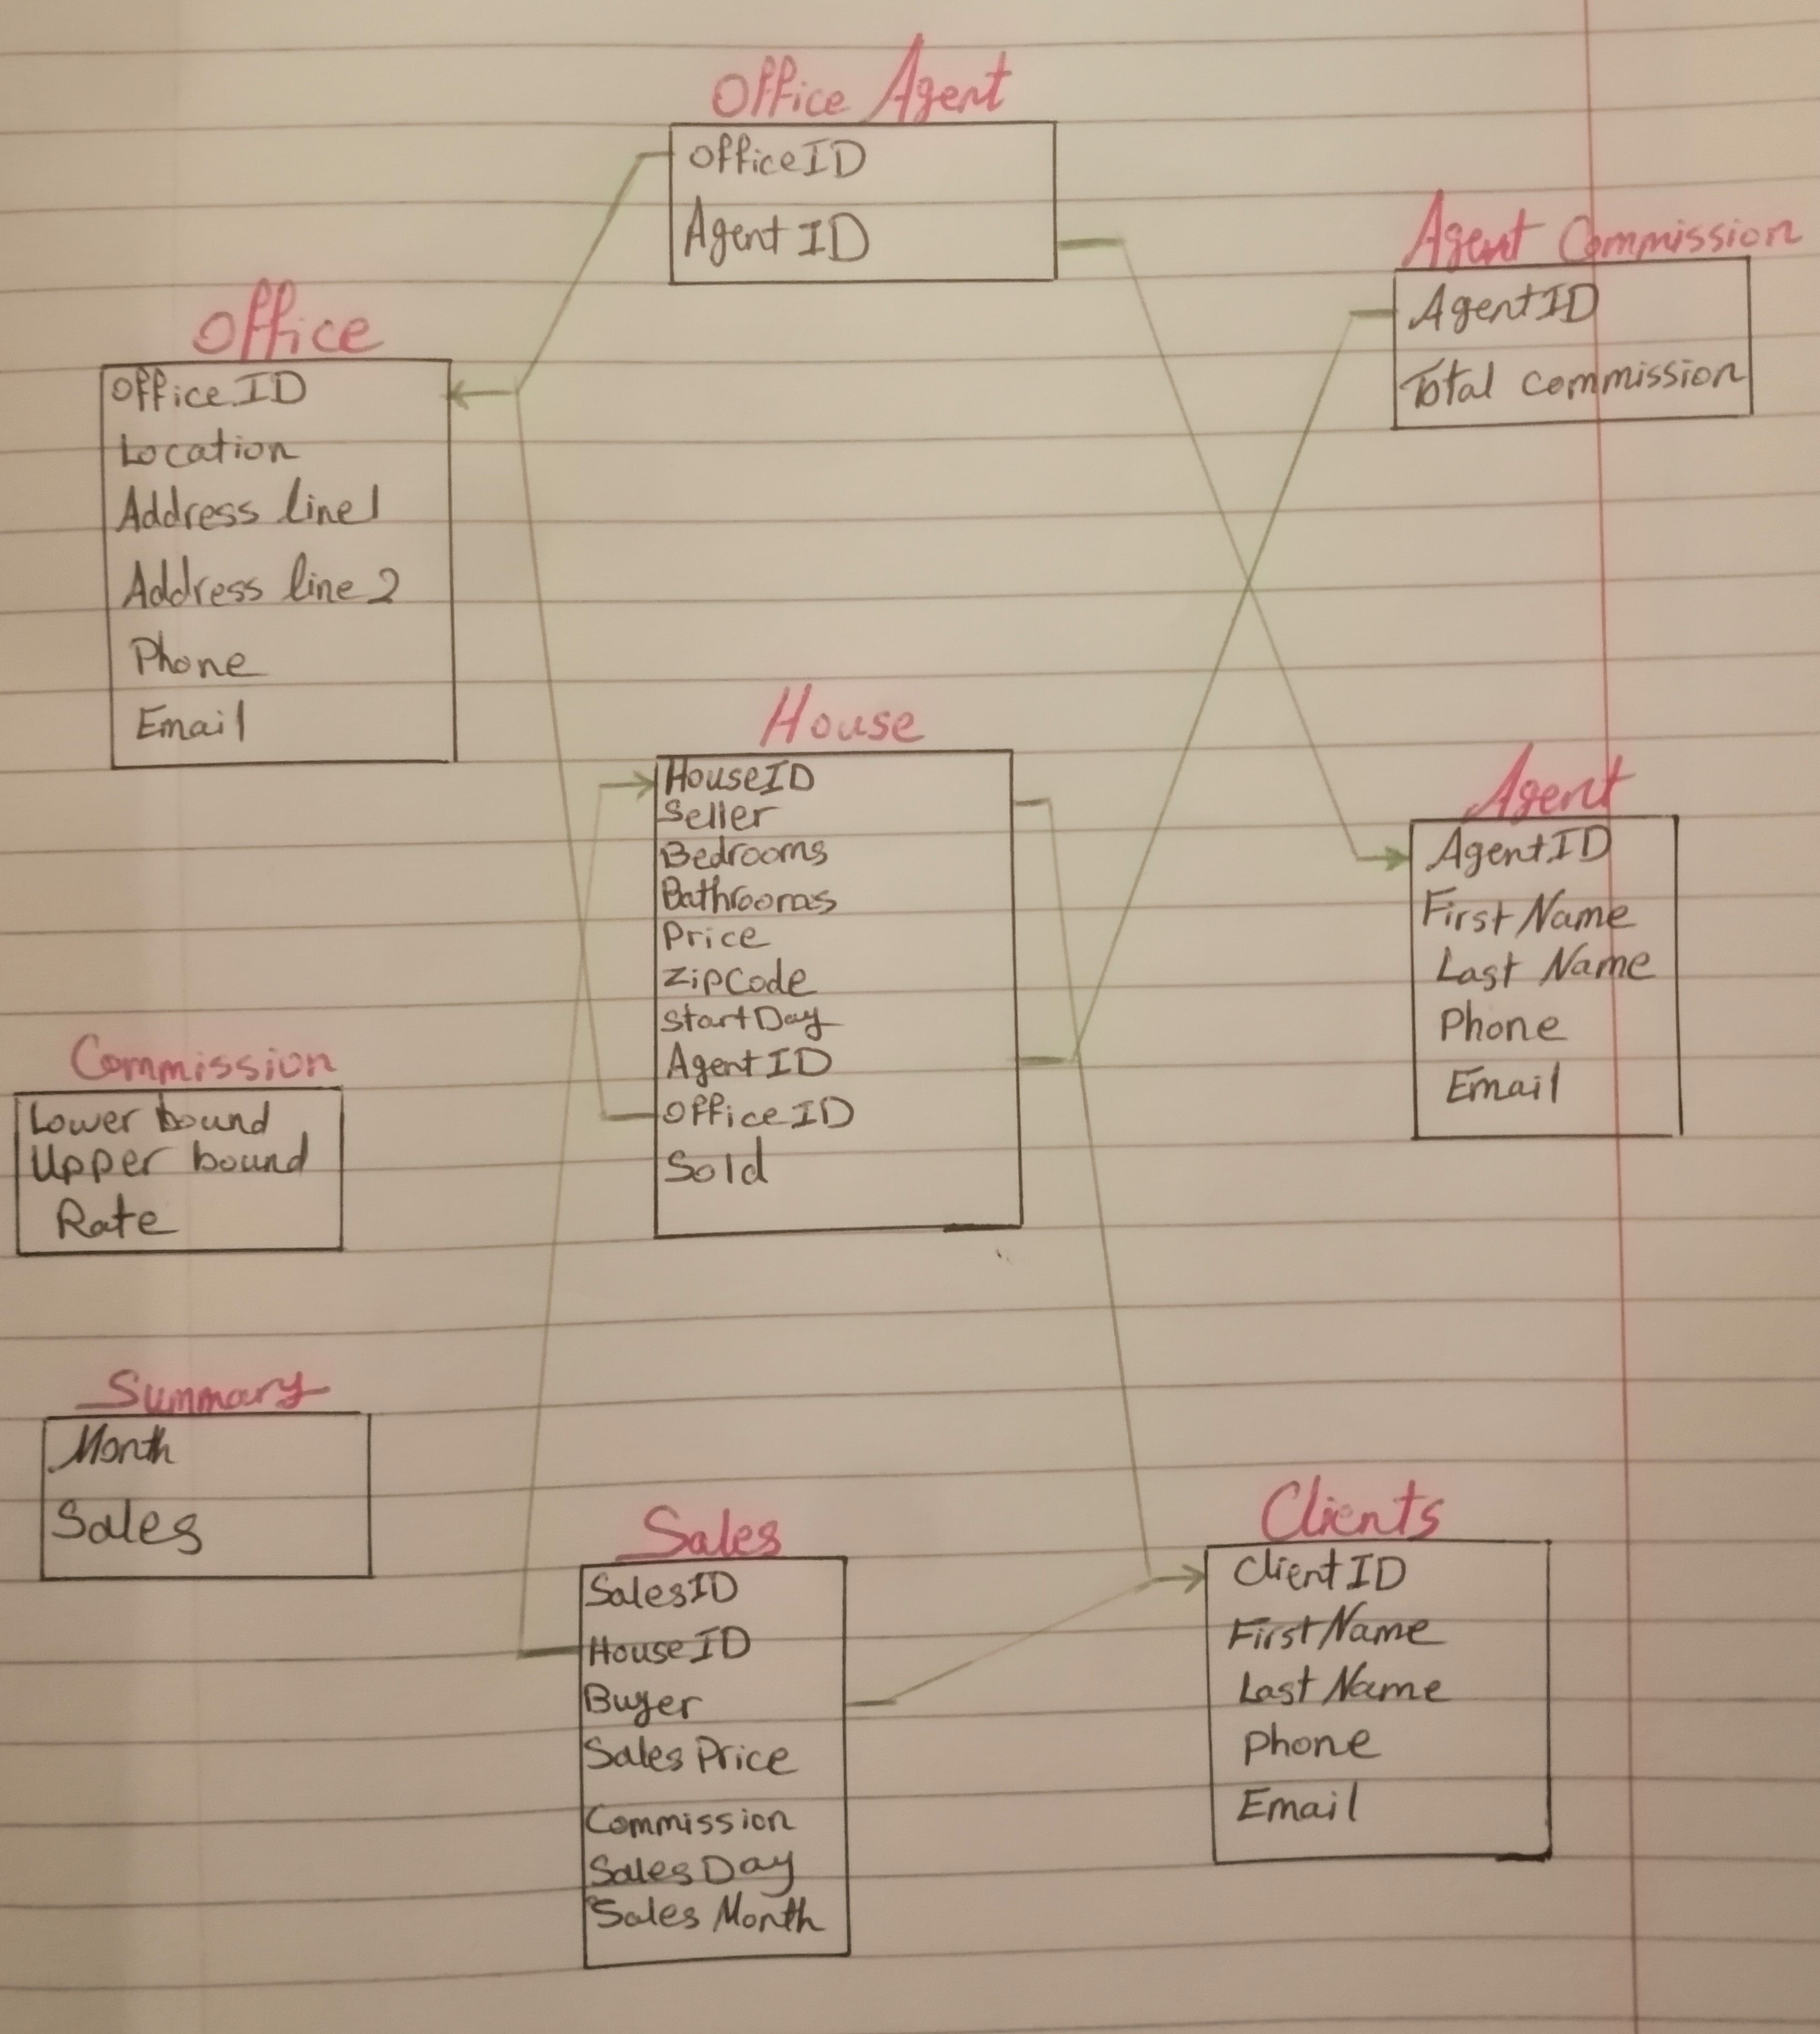 Office Agent
OfficeID
Agent ID
Agent Commission
AgentID
Total commission
Office
Office ID
Location
Address line1
Address line2
Phone
Email
House
HouseID
Seller
Bedrooms
Bathrooms
Price
ZipCode
StartDay
AgentID
OfficeID
Sold
Agent
AgentID
First Name
Last Name
Phone
Email
Commission
Lower bound
Upper bound
Rate
Summary
Month
Sales
Sales
SalesID
HouseID
Buyer
Sales Price
Commission
Sales Day
Sales Month
Clients
ClientID
First Name
Last Name
Phone
Email